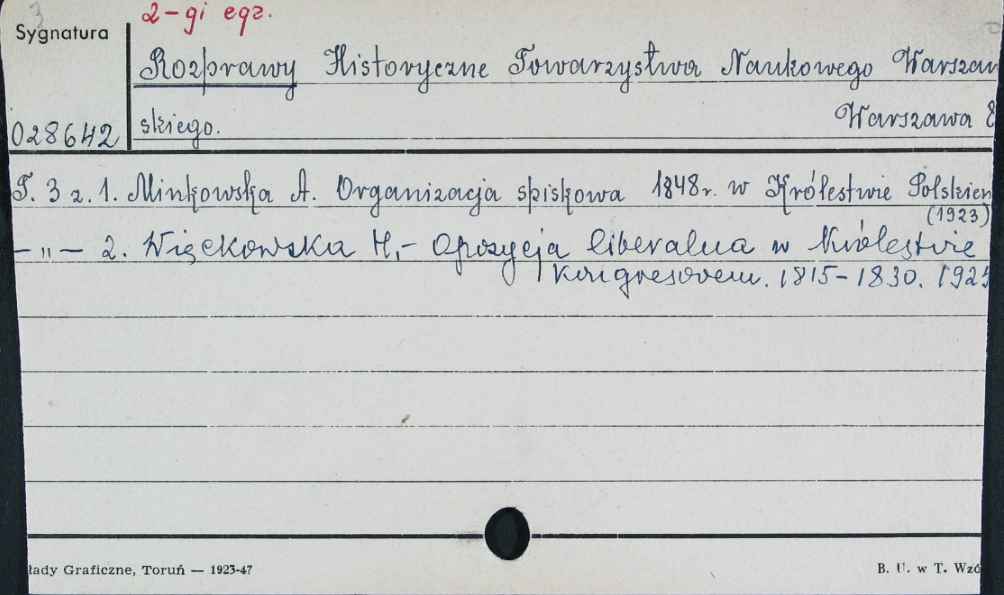 2-gi egz.
Sygnatura
Rozprawy Historyczne Towarzystwa Naukowego Warszaw
028642 skiego. Warszawa 8
T. 3 z. 1. Minkowska A. Organizacja spiskowa 1848 r. w Królestwie Polskiem
(1923)
— „ — 2. Więckowska H, - Opozycja liberalna w Królestwie
kongresowem. 1815-1830. 1925
łady Graficzne, Toruń — 1923-47 B. U. w T. Wzó